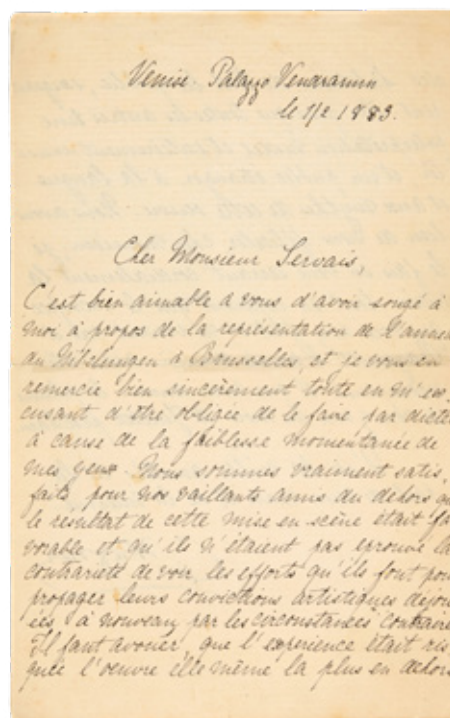 Venise. Palazzo Vendramin
le 1/2 1883.
Cher Monsieur Servais,
C'est bien aimable à vous d'avoir songé à
moi à propos de la représentation de l'anneau
du Nibelungen à Brusselles, et je vous en
remercie bien sincèrement toute en m'ex,
cusant d'être obligée de le faire par dictée
à cause de la faiblesse momentanée de
mes yeux. Nous sommes vraiment satis,
faits pour nos vaillants amis du dehors que
le résultat de cette mise en scène était fa
vorable et qu'ils n'étaient pas eprouvé la
contrarieté de voir, les efforts qu'ils font pour
propager leurs convictions artistiques déjou
ées à nouveau par les circonstances contraire
Il faut avouer, que l'expérience était ris
quée l'oeuvre elle même la plus en dehors